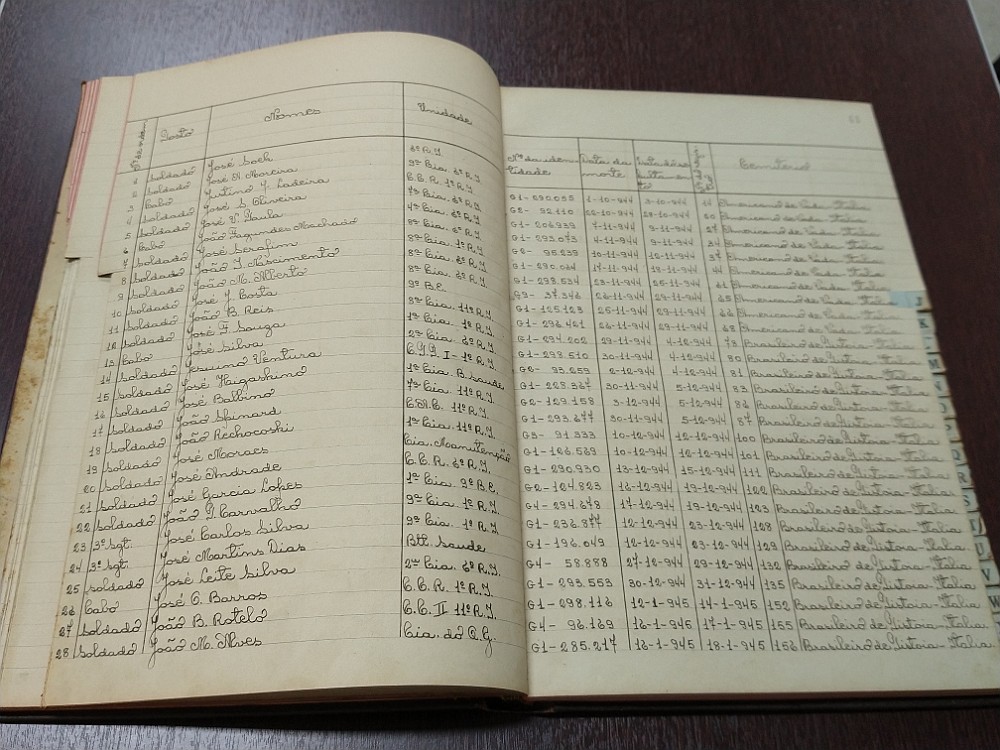 Nº de ordem Posto Nomes Unidade Nº da identidade Data da morte Data do sepultamento Cemiterio
1 Soldado José Soek 6º R.I. G1-290.035 1-10-944 3-10-944 Americano de Vada-Italia
2 Soldado José A. Moreira 9ª Cia. 6º R.I. G2- 92.110 28-10-944 Americano de Vada-Italia
3 Cabo Justino J. Ladeira C.C.R. 1º R.I. G1-206.939 9-11-944 27 Americano de Vada-Italia
4 Soldado José S. Oliveira 7ª Cia. 6º R.I. G1-293.073 4-11-944 9-11-944 34 Americano de Vada-Italia
5 Soldado José V. Paula 4ª Cia. 6º R.I. G2- 95.239 10-11-944 37 Americano de Vada-Italia
6 Cabo João Fagundes Machado 8ª Cia. 6º R.I. 17-11-944 Americano de Vada-Italia
7 Soldado José Serafim 8ª Cia. 1º R.I. G1-298.534 23-11-944 25-11-944 61 Americano de Vada-Italia
8 Soldado João J. Nascimento 8ª Cia. 6º R.I. 37.346 26-11-944 Americano de Vada-Italia
9 Soldado João M. Alberto 8ª Cia. 6º R.I. G1-125.123 25-11-944 Americano de Vada-Italia
10 Soldado José J. Costa 9º B.E. G1-296.421 26-11-944 68 Americano de Vada-Italia
11 Soldado João B. Reis 8ª Cia. 11º R.I. G1-294.202 29-11-944 4-12-944 73 Brasileiro de Pistoia-Italia
12 Soldado José F. Souza 1ª Cia. 1º R.I. G1-298.510 30-11-944 4-12-944 80 Brasileiro de Pistoia-Italia
13 Cabo José Silva 2ª Cia. 6º R.I. G2- 93.259 2-12-944 4-12-944 81 Brasileiro de Pistoia-Italia
14 Soldado Jesuino Ventura I-1º R.I. G1-228.367 30-11-944 5-12-944 83 Brasileiro de Pistoia-Italia
15 Soldado José Higashino 1ª Cia. B. Saude G2-129.158 3-12-944 5-12-944 86 Brasileiro de Pistoia-Italia
16 Soldado José Balbino 7ª Cia. 11º R.I. G1-293.677 30-11-944 5-12-944 87 Brasileiro de Pistoia-Italia
17 Soldado João Spinard 11º R.I. G3- 91.333 10-12-944 12-12-944 100 Brasileiro de Pistoia-Italia
18 Soldado João Rechocoski 1ª Cia. 11º R.I. G1-166.569 10-12-944 12-12-944 101 Brasileiro de Pistoia-Italia
19 Soldado José Moraes Cia. Manutenção G1-290.930 13-12-944 15-12-944 111 Brasileiro de Pistoia-Italia
20 Soldado José Andrade C.C.R. 6º R.I. G2-124.823 16-12-944 19-12-944 122 Brasileiro de Pistoia-Italia
21 Soldado José Garcia Lopes 1ª Cia. 9º B.E. G4-294.678 17-12-944 19-12-944 123 Brasileiro de Pistoia-Italia
22 Soldado João G. Carvalho 9ª Cia. 1º R.I. G1-236.877 12-12-944 23-12-944 128 Brasileiro de Pistoia-Italia
23 3º Sgt. José Carlos Silva 9ª Cia. 1º R.I. G1-196.049 12-12-944 23-12-944 129 Brasileiro de Pistoia-Italia
24 3º Sgt. José Martins Dias Btl. Saude G4- 58.888 27-12-944 29-12-944 132 Brasileiro de Pistoia-Italia
25 Soldado José Leite Silva 2ª Cia. 6º R.I. G1-293.553 30-12-944 31-12-944 135 Brasileiro de Pistoia-Italia
26 Cabo José O. Barros C.C.R. 1º R.I. G1-298.116 12-1-945 14-1-945 152 Brasileiro de Pistoia-Italia
27 Soldado João B. Rotelo C.C.II 11º R.I. G4- 96.169 16-1-945 17-1-945 155 Brasileiro de Pistoia-Italia
28 Soldado João M. Alves Cia. do Q.G. G1-285.217 16-1-945 18-1-945 156 Brasileiro de Pistoia-Italia